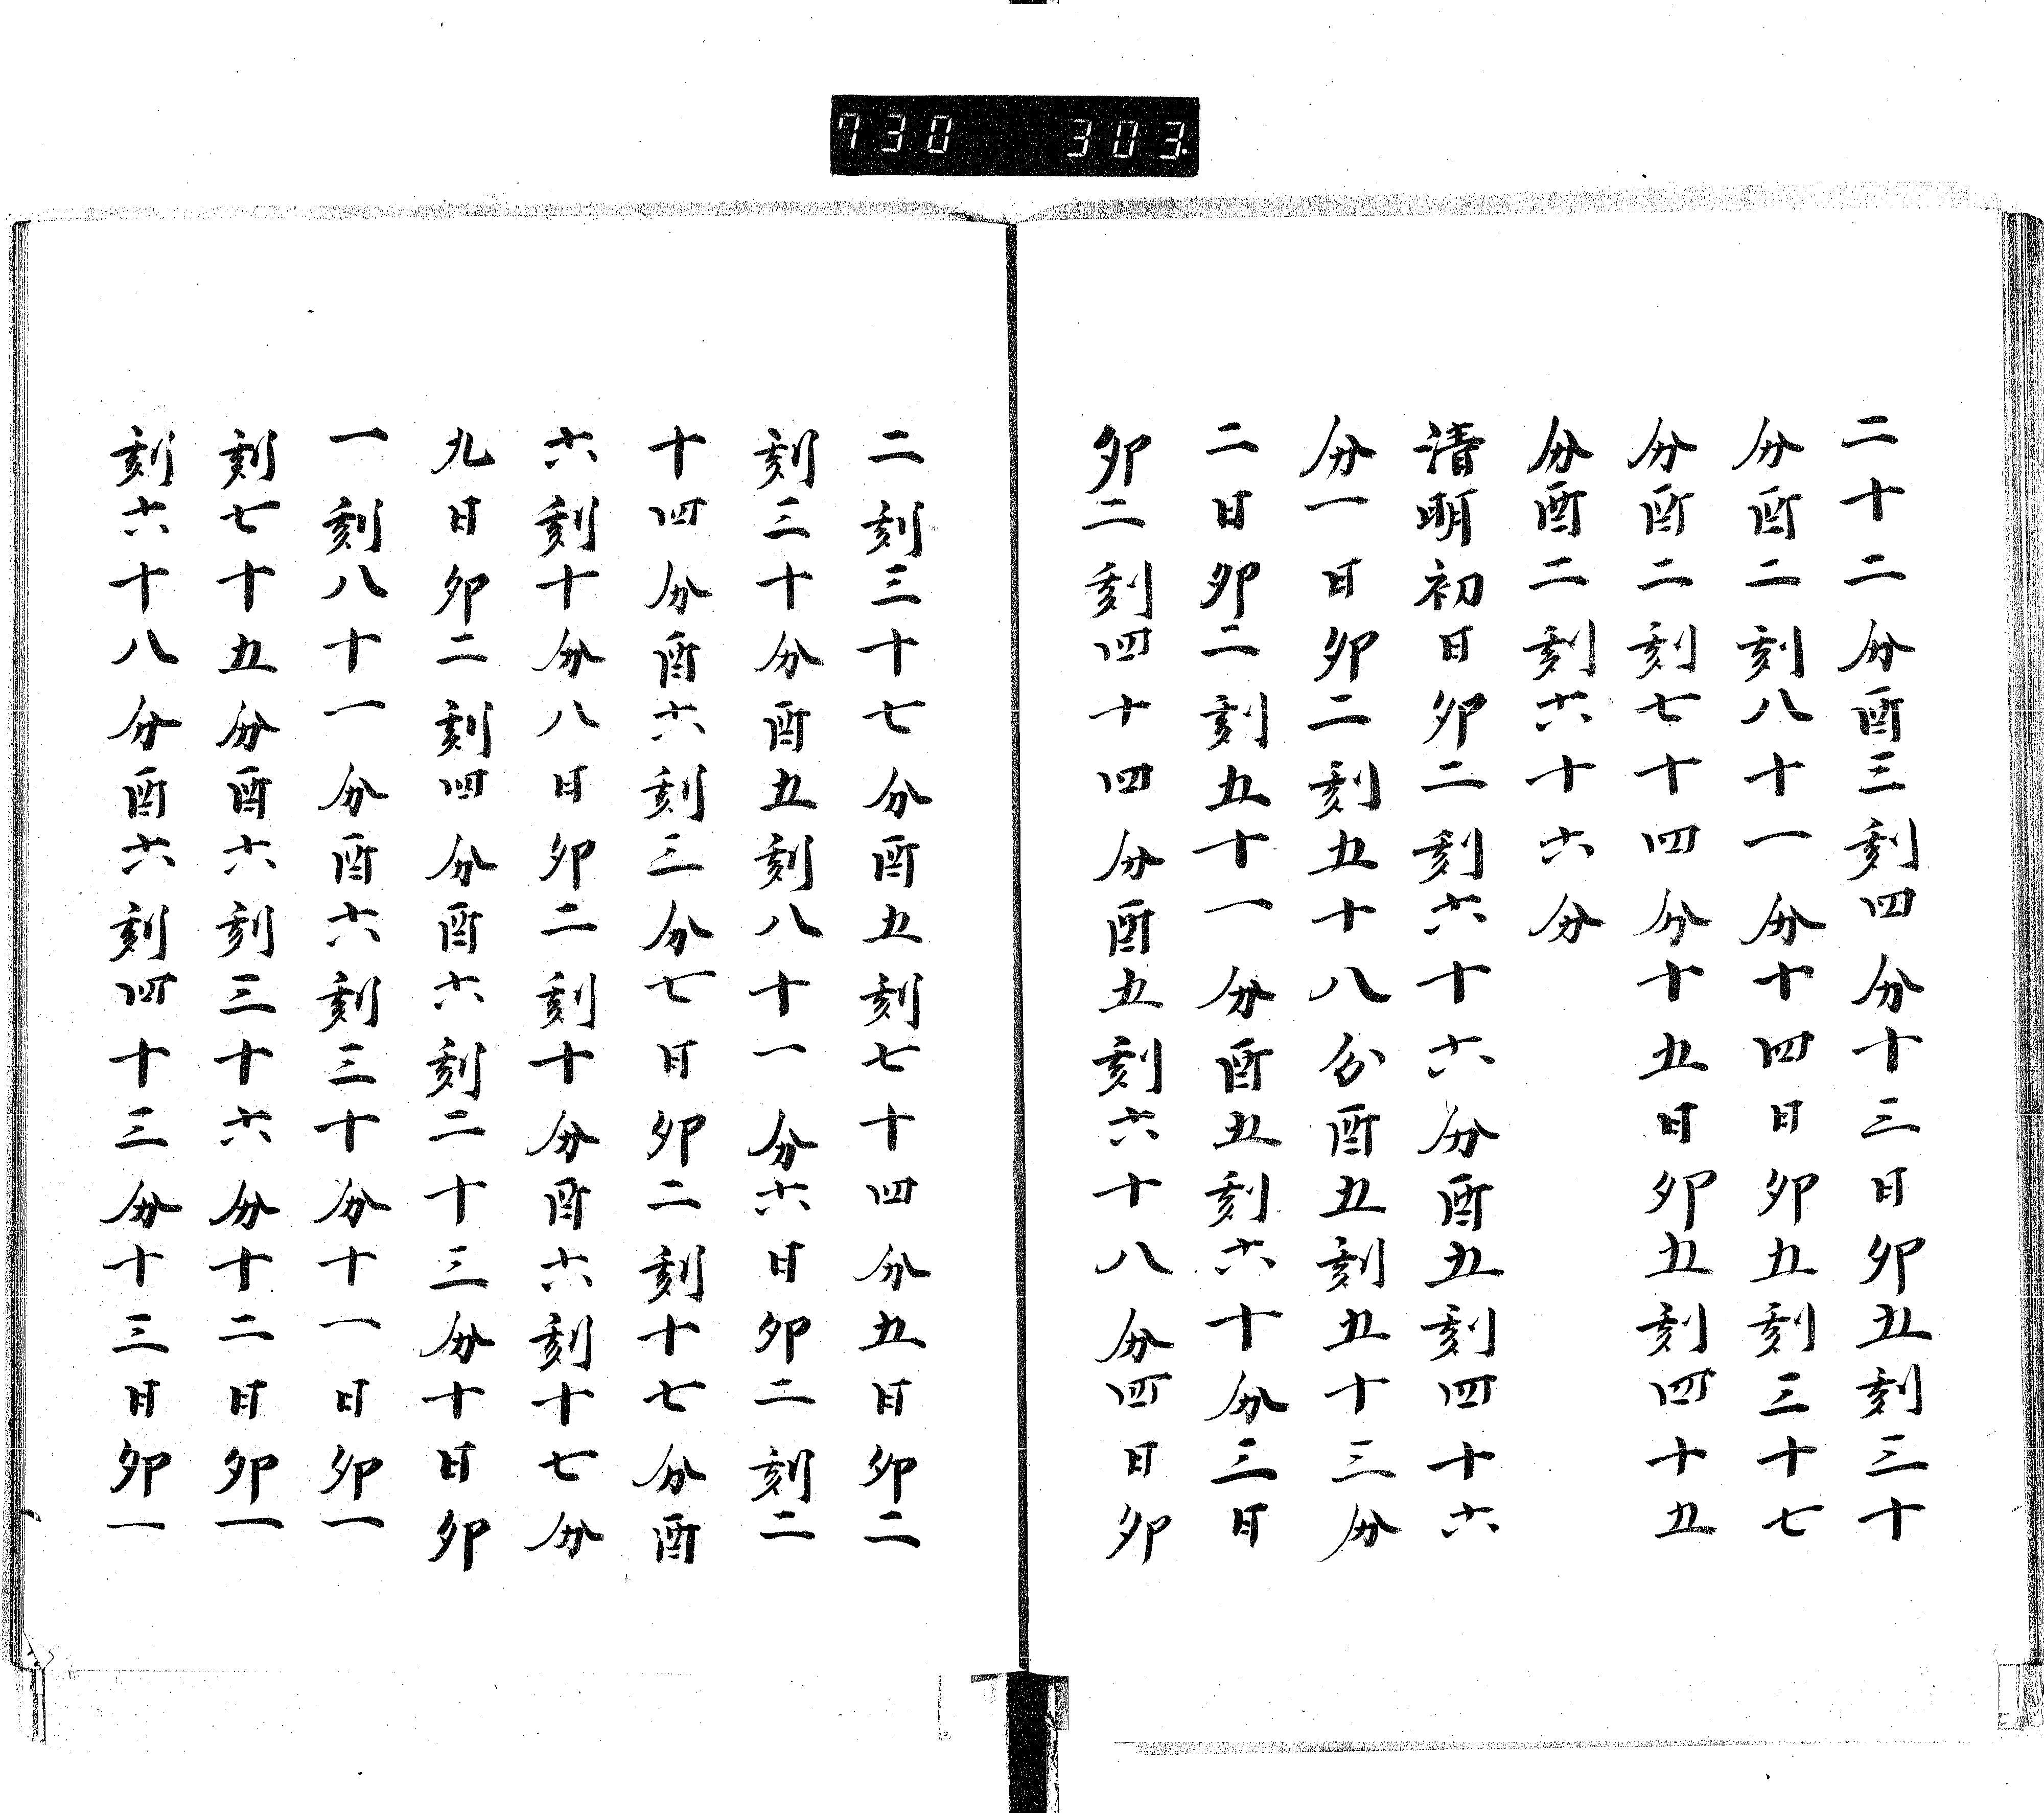 730 303
二十二分酉三刻四分十三日卯五刻三十
分酉二刻八十一分十四日卯五刻三十七
分酉二刻七十四分十五日卯五刻四十五
分酉二刻六十六分
清明初日卯二刻六十六分酉五刻四十六
分一日卯二刻五十八分酉五刻五十三分
二日卯二刻五十一分酉五刻六十分三日
卯二刻四十四分酉五刻六十八分四日卯
二刻三十七分酉五刻七十四分五日卯二
刻三十分酉五刻八十一分六日卯二刻二
十四分酉六刻三分七日卯二刻十七分酉
六刻十分八日卯二刻十分酉六刻十七分
九日卯二刻四分酉六刻二十三分十日卯
一刻八十一分酉六刻三十分十一日卯一
刻七十五分酉六刻三十六分十二日卯一
刻六十八分酉六刻四十三分十三日卯一